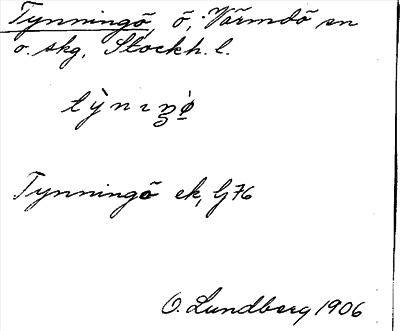 Tynningö, ö, Värmdö sn
o. skg, Stockh. l.
Tynningö ek, G76
O. Lundberg 1906